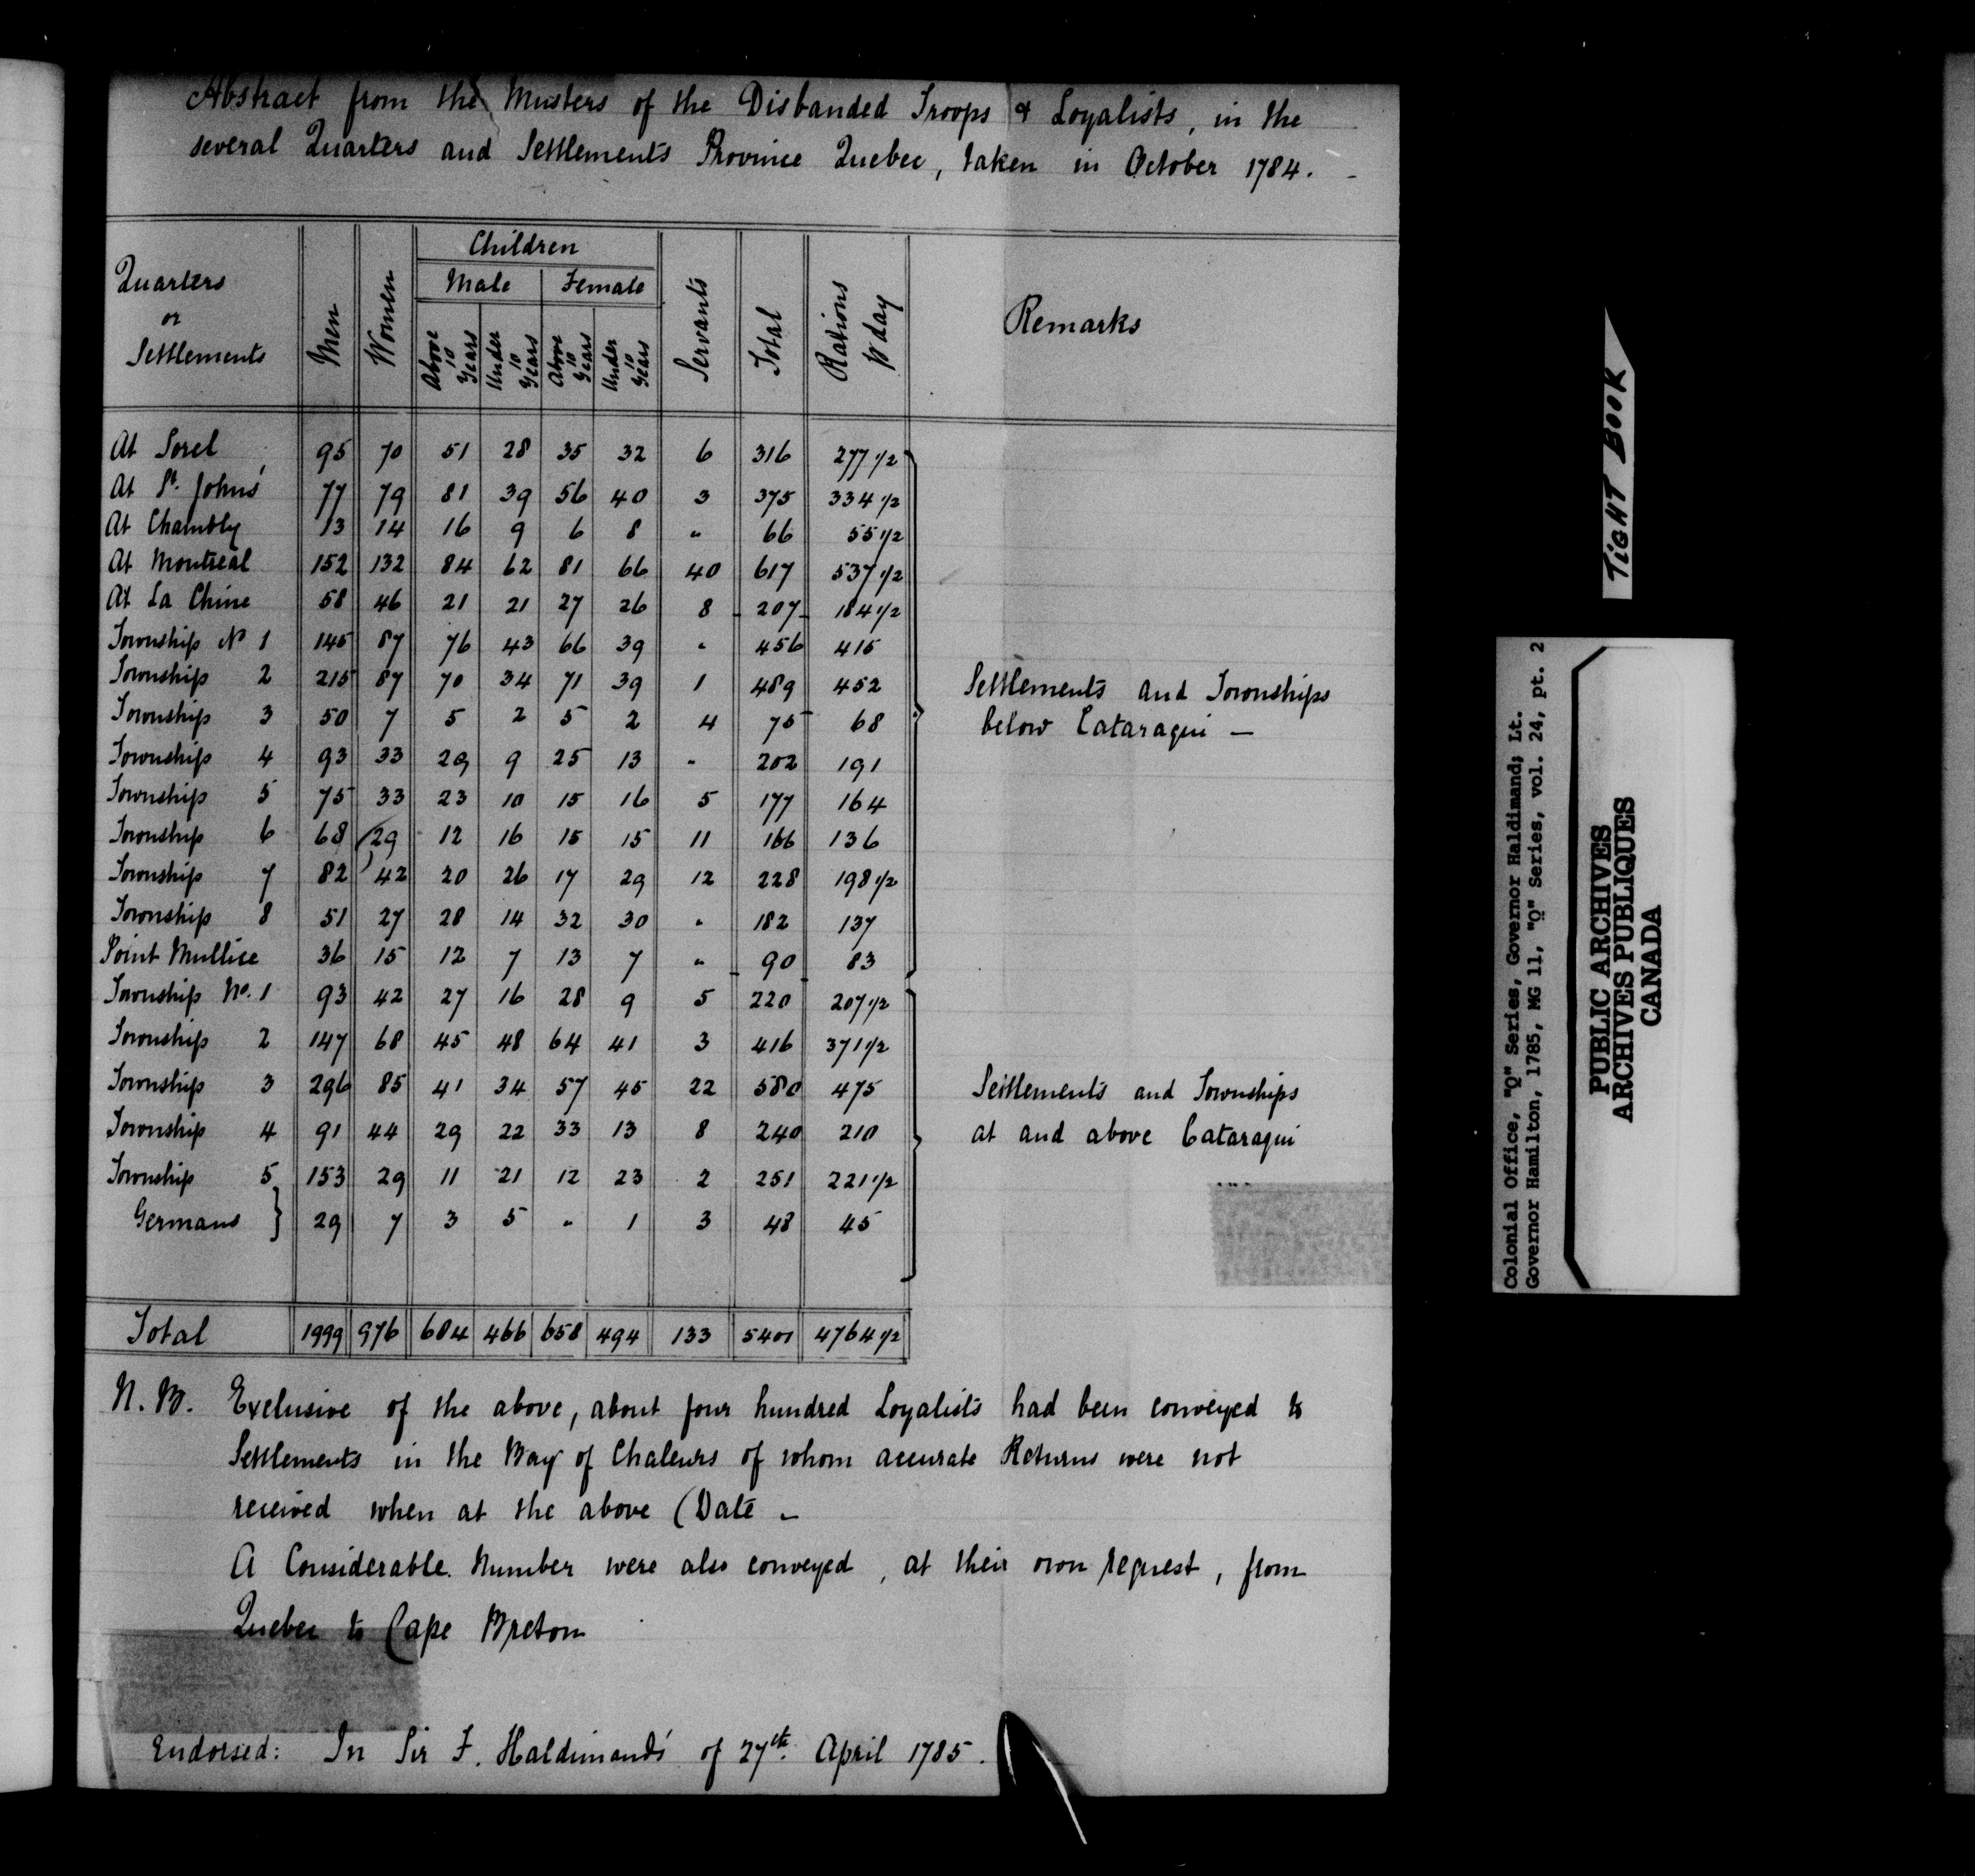 Abstract from the Musters of the Disbanded Troops & Loyalists, in the
several Quarters and Settlements Province Quebec, taken in October 1784. -
Quarters or Settlements | Men | Women | Children Male Above 10 Years | Children Male Under 10 Years | Children Female Above 10 Years | Children Female Under 10 Years | Servants | Total | Rations ⅌ day | Remarks
At Sorel 95 70 51 28 35 32 6 316 277 1/2
At St. Johns 77 79 81 39 56 40 3 375 334 1/2
At Chambly 13 14 16 9 6 8 " 66 55 1/2
At Montreal 152 132 84 62 81 66 40 617 537 1/2
At La Chine 58 46 21 21 27 26 8 207 184 1/2
Township No 1 145 87 76 43 66 39 " 456 415
Township 2 215 87 70 34 71 39 1 489 452
Settlements and Townships
below Cataraqui —
Township 3 50 7 5 2 5 2 4 75 68
Township 4 93 33 29 9 25 13 " 202 191
Township 5 75 33 23 10 15 16 5 177 164
Township 6 68 29 12 16 15 15 11 166 136
Township 7 82 42 20 26 17 29 12 228 198 1/2
Township 8 51 27 28 14 32 30 " 182 137
Point Mullice 36 15 12 7 13 7 " 90 83
Township No. 1 93 42 27 16 28 9 5 220 207 1/2
Township 2 147 68 45 48 64 41 3 416 371 1/2
Township 3 296 85 41 34 57 45 22 580 475
Settlements and Townships
at and above Cataraqui
Township 4 91 44 29 22 33 13 8 240 210
Township 5 153 29 11 21 12 23 2 251 221 1/2
Germans } 29 7 3 5 " 1 3 48 45
Total 1999 976 684 466 658 494 133 5401 4764 1/2
N.B. Exclusive of the above, about four hundred Loyalists had been conveyed to
Settlements in the Bay of Chaleurs of whom accurate Returns were not
received when at the above (Date -
A Considerable. Number were also conveyed, at their own request, from
Quebec to Cape Breton
Endorsed: In Sir F. Haldimand's of 27th. April 1785.
TIGHT BOOK
Colonial Office, "Q" Series, Governor Haldimand; Lt.
Governor Hamilton, 1785, MG 11, "Q" Series, vol. 24, pt. 2
PUBLIC ARCHIVES
ARCHIVES PUBLIQUES
CANADA